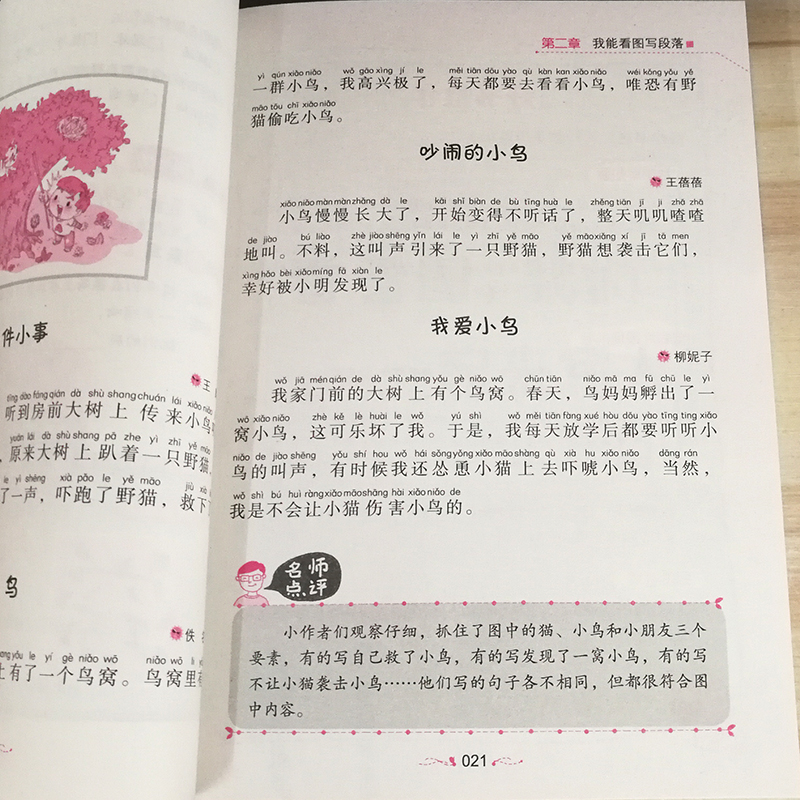 件小事
王
tīng dào fáng qián dà shù shang chuán lái xiǎo niǎo
听到房前大树上传来小鸟
yuán lái dà shù shang pā zhe yì zhī yě māo
，原来大树上趴着一只野猫
le yì shēng xià pǎo le yě māo jiù xià
了一声，吓跑了野猫，救下
鸟
佚
shang yǒu le yí gè niǎo wō niǎo wō lǐ
上有了一个鸟窝。鸟窝里
第二章 我能看图写段落
yì qún xiǎo niǎo wǒ gāo xìng jí le měi tiān dōu yào qù kàn kan xiǎo niǎo wéi kǒng yǒu yě
一群小鸟，我高兴极了，每天都要去看看小鸟，唯恐有野
māo tōu chī xiǎo niǎo
猫偷吃小鸟。
吵闹的小鸟
王蓓蓓
xiǎo niǎo màn màn zhǎng dà le kāi shǐ biàn de bù tīng huà le zhěng tiān jī jī zhā zhā
小鸟慢慢长大了，开始变得不听话了，整天叽叽喳喳
de jiào bú liào zhè jiào shēng yǐn lái le yì zhī yě māo yě māo xiǎng xí jī tā men
地叫。不料，这叫声引来了一只野猫，野猫想袭击它们，
xìng hǎo bèi xiǎo míng fā xiàn le
幸好被小明发现了。
我爱小鸟
柳妮子
wǒ jiā mén qián de dà shù shang yǒu gè niǎo wō chūn tiān niǎo mā ma fū chū le yì
我家门前的大树上有个鸟窝。春天，鸟妈妈孵出了一
wō xiǎo niǎo zhè kě lè huài le wǒ yú shì wǒ měi tiān fàng xué hòu dōu yào tīng ting xiǎo
窝小鸟，这可乐坏了我。于是，我每天放学后都要听听小
niǎo de jiào shēng yǒu shí hou wǒ hái sǒng yǒng xiǎo māo shàng qù xià hu xiǎo niǎo dāng rán
鸟的叫声，有时候我还怂恿小猫上去吓唬小鸟，当然，
wǒ shì bú huì ràng xiǎo māo shāng hài xiǎo niǎo de
我是不会让小猫伤害小鸟的。
名师
点评
小作者们观察仔细，抓住了图中的猫、小鸟和小朋友三个
要素，有的写自己救了小鸟，有的写发现了一窝小鸟，有的写
不让小猫袭击小鸟……他们写的句子各不相同，但都很符合图
中内容。
021